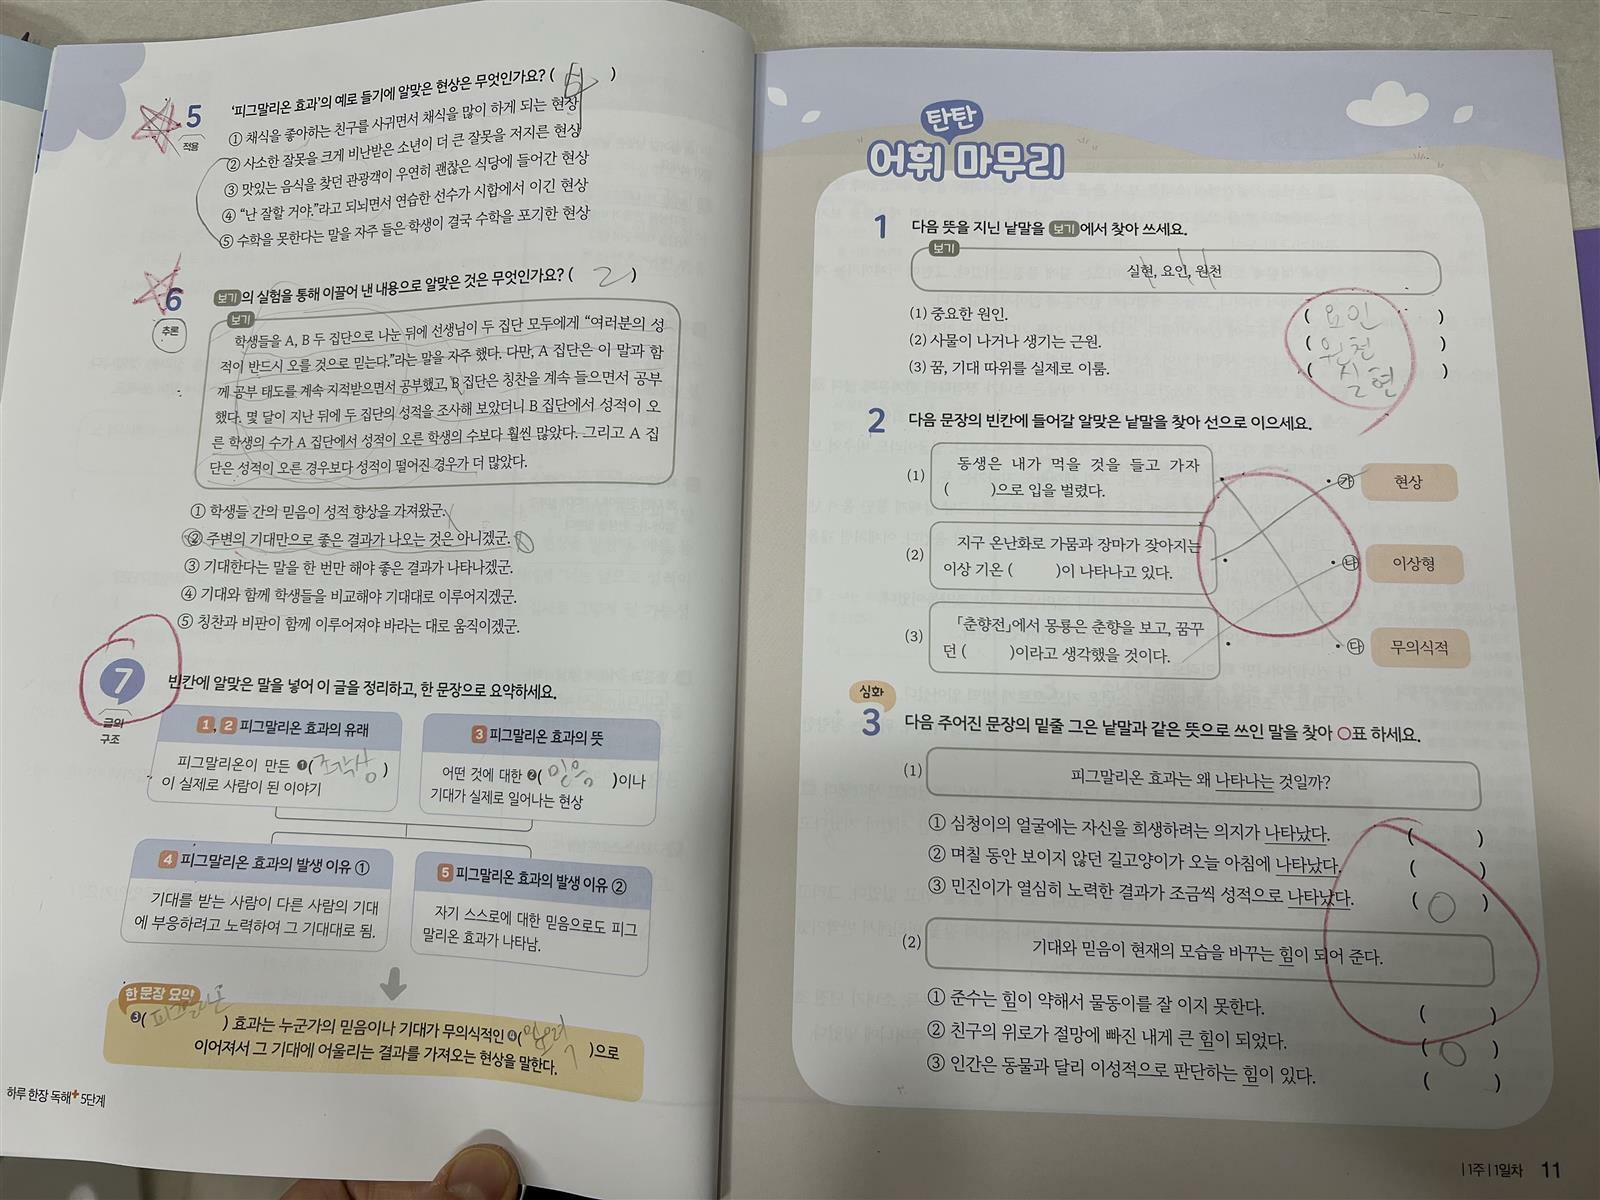 5
적용
'피그말리온 효과'의 예로 들기에 알맞은 현상은 무엇인가요? ( )
① 채식을 좋아하는 친구를 사귀면서 채식을 많이 하게 되는 현상
② 사소한 잘못을 크게 비난받은 소년이 더 큰 잘못을 저지른 현상
③ 맛있는 음식을 찾던 관광객이 우연히 괜찮은 식당에 들어간 현상
④ "난 잘할 거야."라고 되뇌면서 연습한 선수가 시합에서 이긴 현상
⑤ 수학을 못한다는 말을 자주 들은 학생이 결국 수학을 포기한 현상
6
추론
보기의 실험을 통해 이끌어 낸 내용으로 알맞은 것은 무엇인가요? ( 2 )
보기
학생들을 A, B 두 집단으로 나눈 뒤에 선생님이 두 집단 모두에게 "여러분의 성
적이 반드시 오를 것으로 믿는다."라는 말을 자주 했다. 다만, A 집단은 이 말과 함
께 공부 태도를 계속 지적받으면서 공부했고, B 집단은 칭찬을 계속 들으면서 공부
했다. 몇 달이 지난 뒤에 두 집단의 성적을 조사해 보았더니 B 집단에서 성적이 오
른 학생의 수가 A 집단에서 성적이 오른 학생의 수보다 훨씬 많았다. 그리고 A 집
단은 성적이 오른 경우보다 성적이 떨어진 경우가 더 많았다.
① 학생들 간의 믿음이 성적 향상을 가져왔군.
② 주변의 기대만으로 좋은 결과가 나오는 것은 아니겠군.
③ 기대한다는 말을 한 번만 해야 좋은 결과가 나타나겠군.
④ 기대와 함께 학생들을 비교해야 기대대로 이루어지겠군.
⑤ 칭찬과 비판이 함께 이루어져야 바라는 대로 움직이겠군.
7
글의
구조
빈칸에 알맞은 말을 넣어 이 글을 정리하고, 한 문장으로 요약하세요.
1, 2 피그말리온 효과의 유래
피그말리온이 만든 ❶( 조각상 )
이 실제로 사람이 된 이야기
3 피그말리온 효과의 뜻
어떤 것에 대한 ❷( 믿음 )이나
기대가 실제로 일어나는 현상
4 피그말리온 효과의 발생 이유 ①
기대를 받는 사람이 다른 사람의 기대
에 부응하려고 노력하여 그 기대대로 됨.
5 피그말리온 효과의 발생 이유 ②
자기 스스로에 대한 믿음으로도 피그
말리온 효과가 나타남.
한 문장 요약
❸( 피그말리온 ) 효과는 누군가의 믿음이나 기대가 무의식적인 ❹( )으로
이어져서 그 기대에 어울리는 결과를 가져오는 현상을 말한다.
하루 한장 독해+ 5단계
탄탄
어휘 마무리
1 다음 뜻을 지닌 낱말을 보기에서 찾아 쓰세요.
보기
실현, 요인, 원천
(1) 중요한 원인. ( 요인 )
(2) 사물이 나거나 생기는 근원. ( 원천 )
(3) 꿈, 기대 따위를 실제로 이룸. ( 실현 )
2 다음 문장의 빈칸에 들어갈 알맞은 낱말을 찾아 선으로 이으세요.
(1) 동생은 내가 먹을 것을 들고 가자
( )으로 입을 벌렸다.
㉮ 현상
(2) 지구 온난화로 가뭄과 장마가 잦아지는
이상 기온 ( )이 나타나고 있다.
㉯ 이상형
(3) 「춘향전」에서 몽룡은 춘향을 보고, 꿈꾸
던 ( )이라고 생각했을 것이다.
㉰ 무의식적
심화
3 다음 주어진 문장의 밑줄 그은 낱말과 같은 뜻으로 쓰인 말을 찾아 ○표 하세요.
(1) 피그말리온 효과는 왜 나타나는 것일까?
① 심청이의 얼굴에는 자신을 희생하려는 의지가 나타났다. ( )
② 며칠 동안 보이지 않던 길고양이가 오늘 아침에 나타났다. ( )
③ 민진이가 열심히 노력한 결과가 조금씩 성적으로 나타났다. ( ○ )
(2) 기대와 믿음이 현재의 모습을 바꾸는 힘이 되어 준다.
① 준수는 힘이 약해서 물동이를 잘 이지 못한다. ( )
② 친구의 위로가 절망에 빠진 내게 큰 힘이 되었다. ( ○ )
③ 인간은 동물과 달리 이성적으로 판단하는 힘이 있다. ( )
| 1주 | 1일차 11